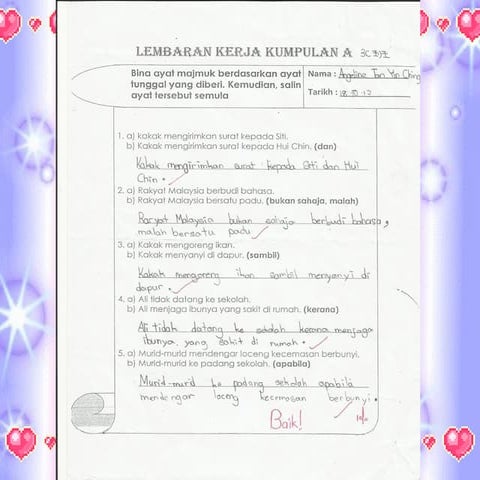 LEMBARAN KERJA KUMPULAN A
Bina ayat majmuk berdasarkan ayat
tunggal yang diberi. Kemudian, salin
ayat tersebut semula
Nama : Angeline Tan Yin Ching
Tarikh :
1. a) kakak mengirimkan surat kepada Siti.
b) Kakak mengirimkan surat kepada Hui Chin. (dan)
Kakak mengirimkan surat kepada Siti dan Hui
Chin .
2. a) Rakyat Malaysia berbudi bahasa.
b) Rakyat Malaysia bersatu padu. (bukan sahaja, malah)
Raryat Malaysia bukan sahaja berbudi bahasa,
malah bersatu padu
3. a) Kakak mengoreng ikan.
b) Kakak menyanyi di dapur. (sambil)
Kakak mengoreng ikan sambil menyanyi di
dapur .
4. a) Ali tidak datang ke sekolah.
b) Ali menjaga ibunya yang sakit di rumah. (kerana)
Ali tidak datang ke sekolah kerana menjaga
ibunya yang sakit di rumah .
5. a) Murid-murid mendengar loceng kecemasan berbunyi.
b) Murid-murid ke padang sekolah. (apabila)
Murid-murid ke padang sekolah apabila
mendengar loceng kecemasan berbunyi .
Baik!